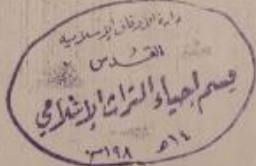 دائرة الأوقاف الإسلامية
القدس
قسم إحياء التراث الإسلامي